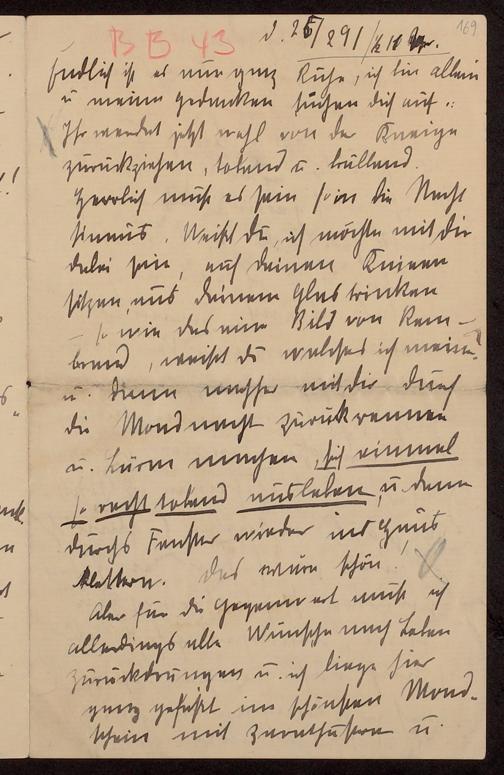 169
BB 43
d. 25/291 ½ 10 Uhr.
Endlich ist es nun ganz Ruhe, ich bin allein
u meine Gedanken suchen dich auf.
Ihr werdet jetzt wohl von der Kneipe
zurückziehen, tobend u. brüllend.
Herrlich muß es sein so in die Nacht
hinaus. Weißt du, ich möchte mit dir
dabei sein, auf deinen Knieen
sitzen, aus deinem Glas trinken
– so wie das eine Bild von Rem-
brand, weißt du welches ich meine,
u. dann nachher mit dir durch
die Mondnacht zurückrennen
u. Lärm machen, sich einmal
so recht tobend ausleben, u. dann
durchs Fenster wieder ins Haus
klettern. Das wäre schön!
Aber für die Gegenwart muß ich
allerdings alle Wünsche nach Leben
zurückdrängen u. ich liege hier
ganz gefaßt im schönsten Mond-
schein mit Zarathustra u.